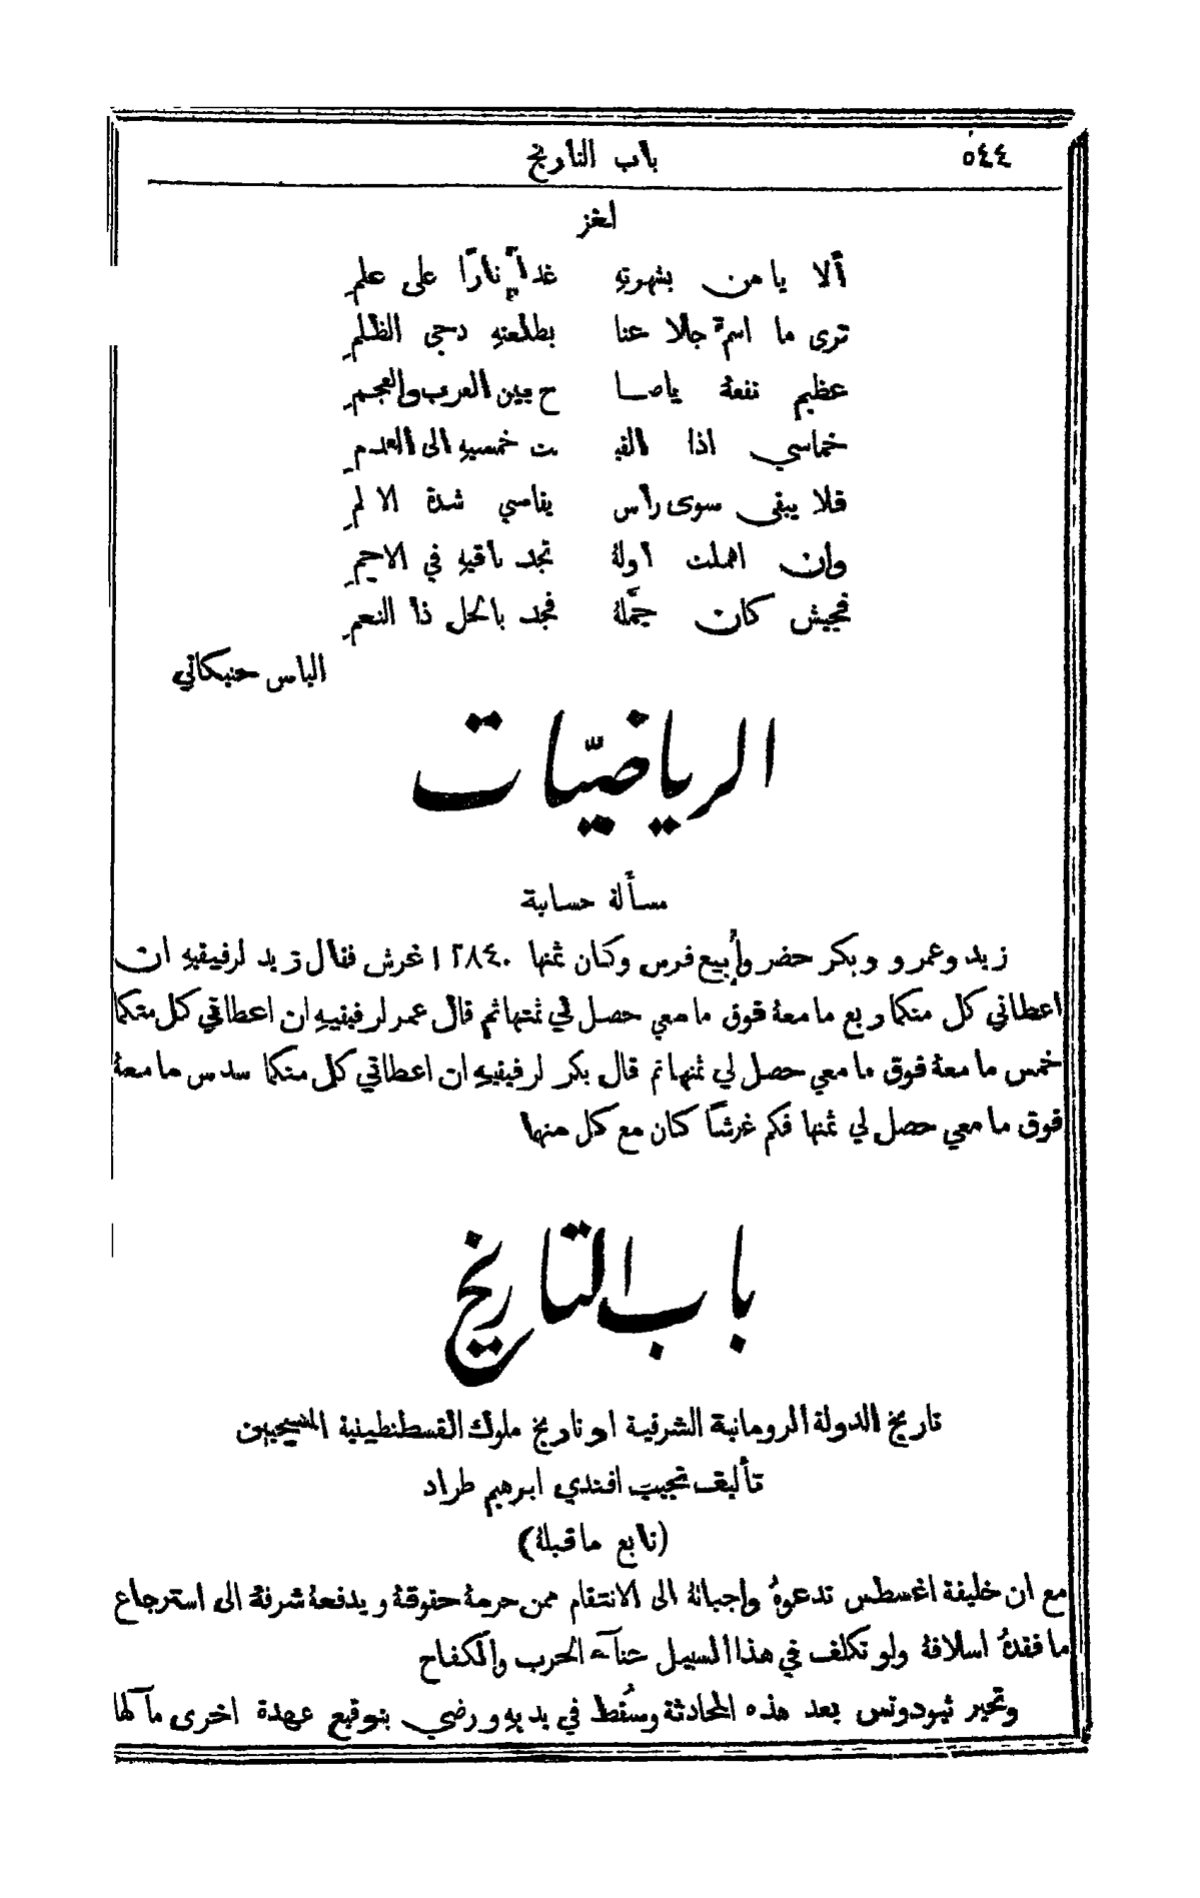 ٥٤٤ باب التاريخ
لغز
ألا يا من بشهرتهِ غدا نارًا على علمِ
ترى ما اسم جلا عنا بطلعتهِ دجى الظلمِ
عظيم نفعهُ ياصا ح بين العرب والعجمِ
خماسي اذا القيـ ـت خمسيهِ الى العدمِ
فلا يبقى سوى رأس يقاسي شدة الالمِ
وان اهملت اولهُ تجد باقيهِ في الاجمِ
فجيش كان جملهُ فجد بالحل ذا النعمِ
الياس حنيكاتي
الرياضيّات
مسألة حسابية
زيد وعمرو وبكر حضروا بيع فرس وكان ثمنها ١٢٨٤٠ غرش فقال زيد لرفيقيهِ ان
اعطاني كل منكما ربع ما معهُ فوق ما معي حصل لي ثمنها ثم قال عمر لرفيقيهِ ان اعطاني كل منكما
خمس ما معهُ فوق ما معي حصل لي ثمنها ثم قال بكر لرفيقيهِ ان اعطاني كل منكما سدس ما معهُ
فوق ما معي حصل لي ثمنها فكم غرشًا كان مع كل منها
باب التاريخ
تاريخ الدولة الرومانية الشرقية او تاريخ ملوك القسطنطينية المسيحيين
تأليف نجيب افندي ابرهيم طراد
(تابع ما قبلهُ)
مع ان خليفة اغسطس تدعوهُ واجباتهُ الى الانتقام ممن حرمهُ حقوقهُ ويدفعهُ شرفهُ الى استرجاع
ما فقدهُ اسلافهُ ولو تكلف في هذا السبيل عنآء الحرب والكفاح
وتحير ثيودوتس بعد هذه المحادثة وسُقط في يديهِ ورضي بتوقيع عهدة اخرى مآلها